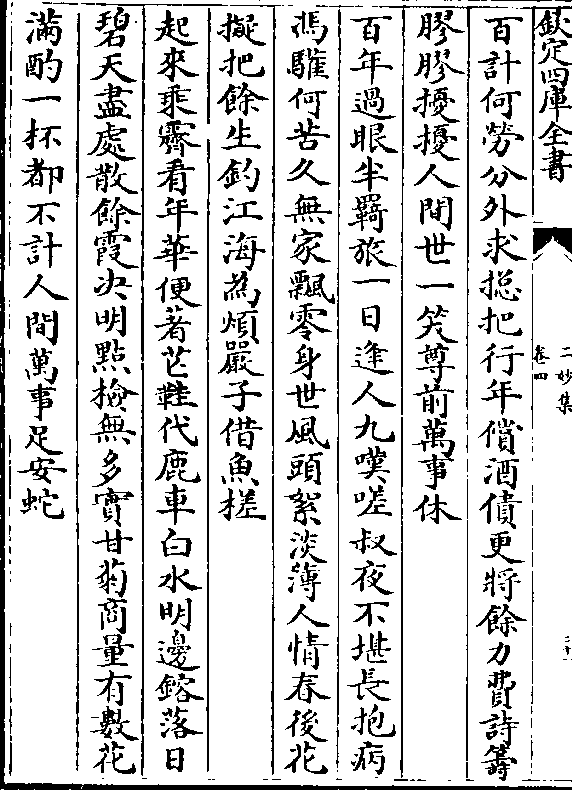 欽定四庫全書
二妙集
卷四
百計何勞分外求摠把行年償酒債更將餘力費詩籌
膠膠擾擾人間世一笑尊前萬事休
百年過眼半羇旅一日逢人九嘆嗟叔夜不堪長抱病
馮驩何苦久無家飄零身世風頭絮淡薄人情春後花
擬把餘生釣江海為煩嚴子借魚槎
起來乘霽看年華便著芒鞋代鹿車白水明邊鎔落日
碧天盡處散餘霞决明點檢無多實甘菊商量有數花
滿酌一杯都不計人間萬事足安蛇